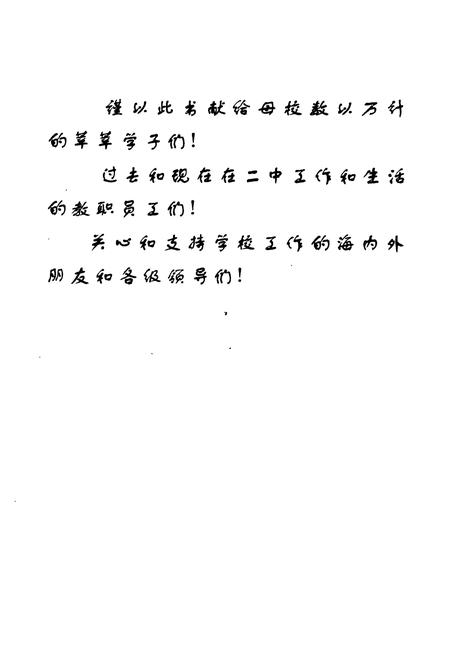 谨以此书献给母校数以万计
的莘莘学子们!
过去和现在在二中工作和生活
的教职员工们!
关心和支持学校工作的海内外
朋友和各级领导们!